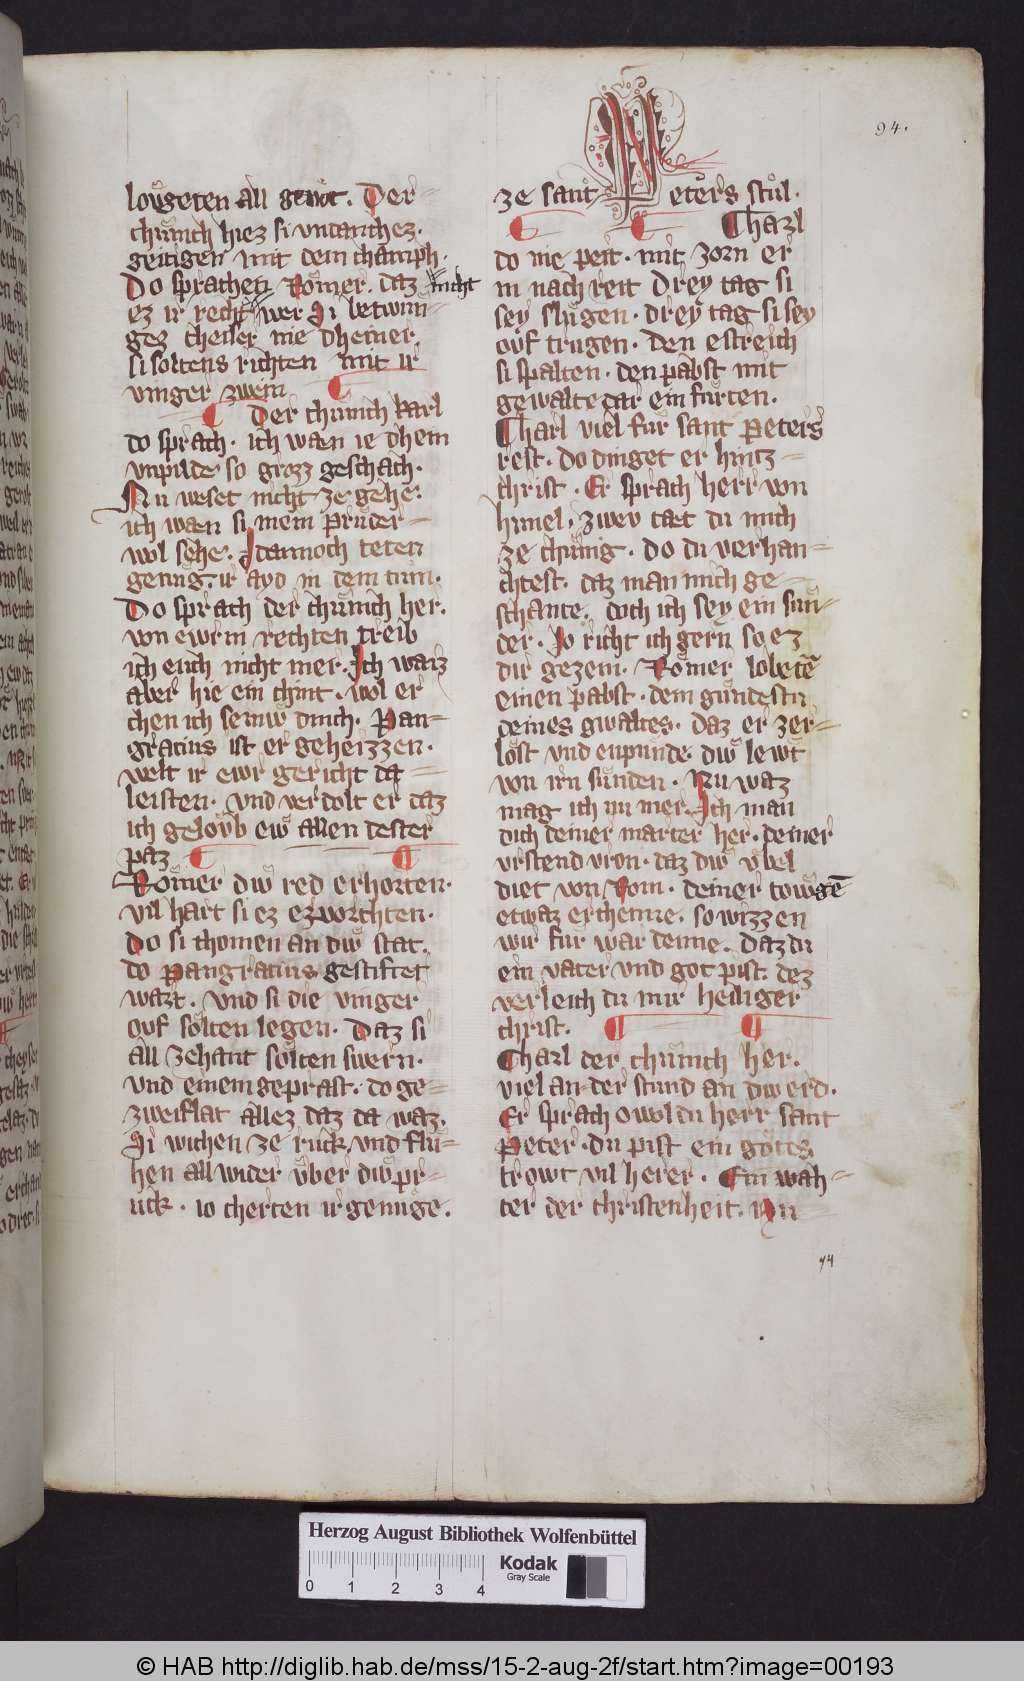 94.
lovgeten all genot. Der
chůnich hiez si vndanchez.
geitigen mit dem champh.
Do sprachen Rőmer. daz nicht
ez ir recht wer Si betwun
gez cheiser nie dheiner.
si soltens richten mit ir
vinger zwein
Der chůnich karl
do sprach. ich waen ie dhein
vnpilde so grozz geschach.
Nu weset nicht ze gehe.
ich waen si mein průder
wol sehe. dannoch teten
genůg. ir ayd in dem tům.
Do sprach der chůnich her.
von ewrm rechten treib
ich euch nicht mer. Ich waiz
aber hie ein chint. wol er
chen ich seinw dinch. Pan
gratius ist er geheizzen.
welt ir ewr gericht da
leisten. vnd verdolt er daz
ich gelovb ew allen dester
paz
Rőmer diw red erhorten.
vil hart si ez ervorchten.
Do si chomen an diw stat.
do Pangratius gestiftet
wazt. vnd si die vinger
ovf sőlten legen. Daz si
all zehant sőlten swern.
vnd einem geprast. do ge
zweiflat allez daz da waz.
Si wichen ze ruck. vnd flu
hen all wider vber diw pr
uck. io cherten ir genůge.
ze sant Peters stůl.
Charl
do nie peit. mit zorn er
in nach reit Drey tag si
sey slůgen. drey tag si sey
ovf trugen. den estreich
si spalten. den pabst mit
gewalte dar ein fůrten.
Charl viel fur sant Peters
rest. Do dinget er hintz
christ. Er sprach herr von
himel. zwev taet du mich
ze chůnig. do du verhan
chtest. daz man mich ge
schante. doch ich sey ein sun
der. Jo richt ich gern so ez
dir gezem. Rőmer lobetē
einen pabst. dem gůndestu
deines gwaltes. daz er zer
lőst vnd enpunde diw lewt
von irn sůnden. Nu waz
mag ich nu mer. Ich man
dich deiner marter her. deiner
vrstend vron. daz diw vbel
diet von Rom. deiner tovgē
etwaz erchenne. so wizzen
wir fur war denne. Daz du
ein vater vnd got pist. dez
verleich du mir heiliger
christ.
Charl der chůnich her.
viel an der stund an diw erd.
Er sprach owol du herr sant
Peter. du pist ein gőtes
trowt vil herer. Ein wah
ter der christenheit. Nu
94
Herzog August Bibliothek Wolfenbüttel
Kodak
Gray Scale
0 1 2 3 4
© HAB http://diglib.hab.de/mss/15-2-aug-2f/start.htm?image=00193